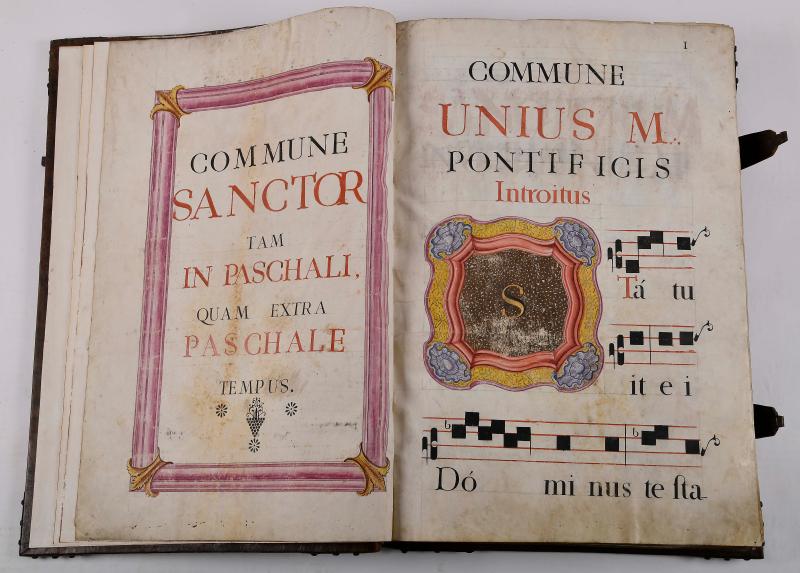 COMMUNE
SANCTOR
TAM
IN PASCHALI,
QUAM EXTRA
PASCHALE
TEMPUS.
1
COMMUNE
UNIUS M.
PONTIFICIS
Introitus
S
Tá tu
it e i
Dó mi nus te ſta-